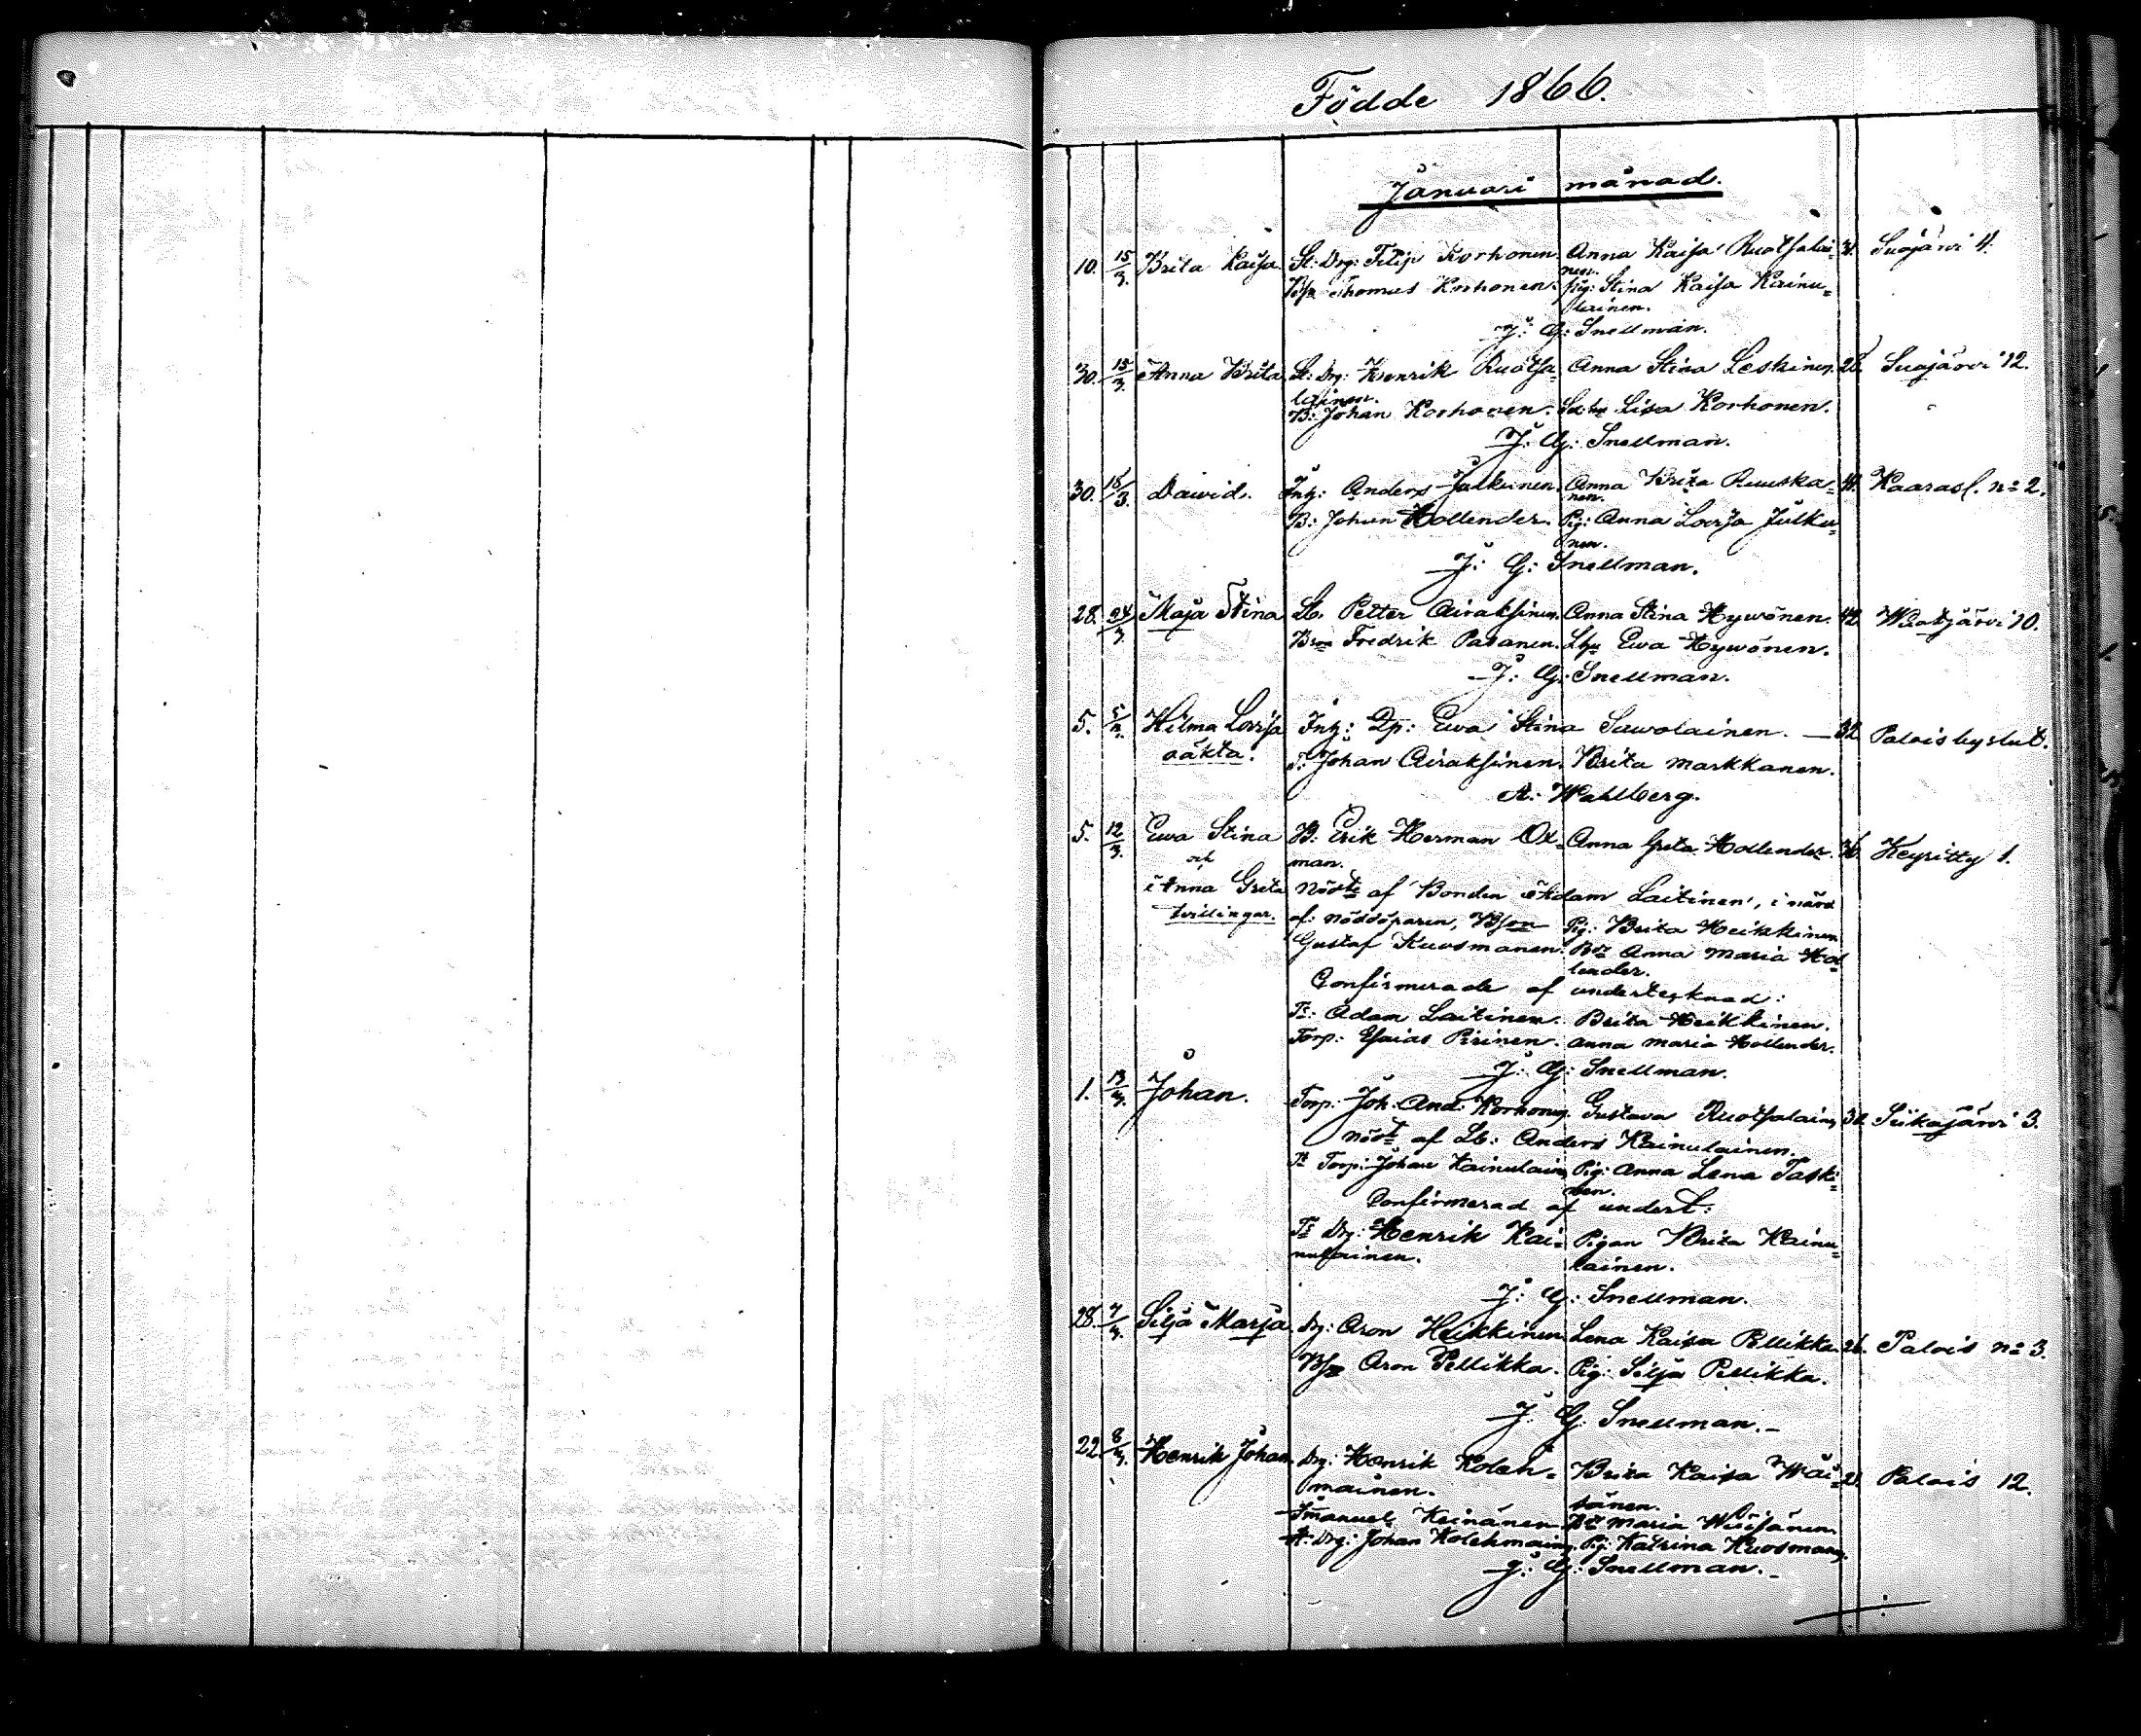 Födde 1866.
Januari månad.
10. 15/3. Brita Kaisa. St: Drg: Filip Korhonen. Anna Kaisa Ruotsalai= 31. Suojärvi 11.
nen.
Bs: Thomas Korhonen. Pig: Stina Kaisa Kainu=
lainen.
J: G: Snellman.
30. 15/3. Anna Brita St: Drg: Henrik Ruotsa= Anna Stina Leskinen. 28. Suojärvi 12.
lainen.
B: Johan Korhonen. Lisa Korhonen.
J: G: Snellman.
30. 15/3. Dawid. Inh: Anders Julkunen. Anna Brita Ruuska= 41. Kaarasl. no 2.
nen.
B: Johan Hollender. Pig: Anna Lovisa Julku=
nen.
J: G: Snellman.
28. 24/3. Maja Stina Lb. Petter Airaksinen. Anna Stina Hywönen. 42. Wuotjärvi 10.
Bson Fredrik Pasanen. Lhu Ewa Hywönen.
J: G: Snellman.
5. Hilma Lovisa Inh: Dp: Ewa Stina Sawolainen. — 32 Palois byslut.
oäkta. T: Johan Airaksinen. Brita Markkanen.
A: Wahlberg.
5. 12/3. Ewa Stina B: Erik Herman Ox= Anna Greta Hollender. 36. Keyritty 1.
och man.
Anna Greta Nödt af Bonden Adam Laitinen, i närv
tvillingar. af: nöddöparen, Bson Pig: Brita Heikkinen
Gustaf Kuosmanen. Bdr Anna Maria Hol=
lender.
Confirmerade af undertecknad:
Ts: Adam Laitinen. Brita Heikkinen.
Torp: Esaias Pirinen. Anna Maria Hollender.
J: G: Snellman.
1. 13/3. Johan. Torp: Joh: And: Korhonen. Gustava Ruotsalainen 32. Siikajärvi 3.
nödt af Lb: Anders Kainulainen.
Ts Torp: Johan Kainulainen Pig: Anna Lena Taski=
nen.
Confirmerad af undert:
Ts Drg: Henrik Kai= Pigan Brita Kainu=
nulainen. lainen.
J: G: Snellman.
28. Silja Marja. Drg: Aron Heikkinen Lena Kaisa Pellikka. 26. Palois no 3.
Bson Aron Pellikka. Pig: Silja Pellikka.
J: G: Snellman.
22. Henrik Johan. Drg: Henrik Koleh= Brita Kaisa Wäi= 21. Palois 12.
mainen. sänen.
Immanuel Keinänen Maria Wäisänen
Drg: Johan Kolehmainen. Pig: Katrina Kuosmanen.
J: G: Snellman.